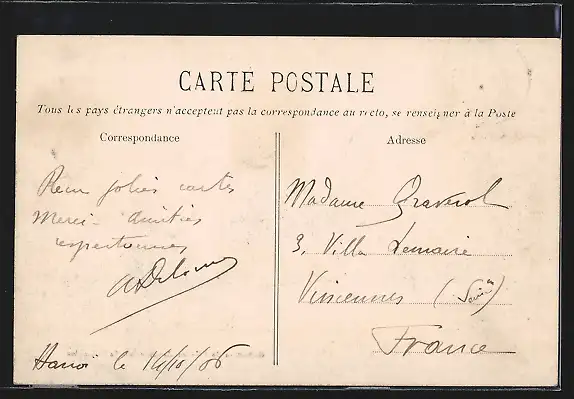 CARTE POSTALE
Tous les pays étrangers n'acceptent pas la correspondance au recto, se renseigner à la Poste
Correspondance
Adresse
Reçu jolies cartes
Merci - Amitiés
respectueuses
Hanoi le 14/10/06
Madame Graverol
3, Villa Lemaire
Vincennes (Seine)
France